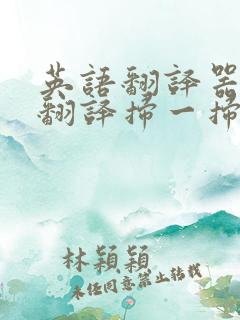 英語翻譯器
翻譯掃一掃
林穎穎
未經同意禁止轉載